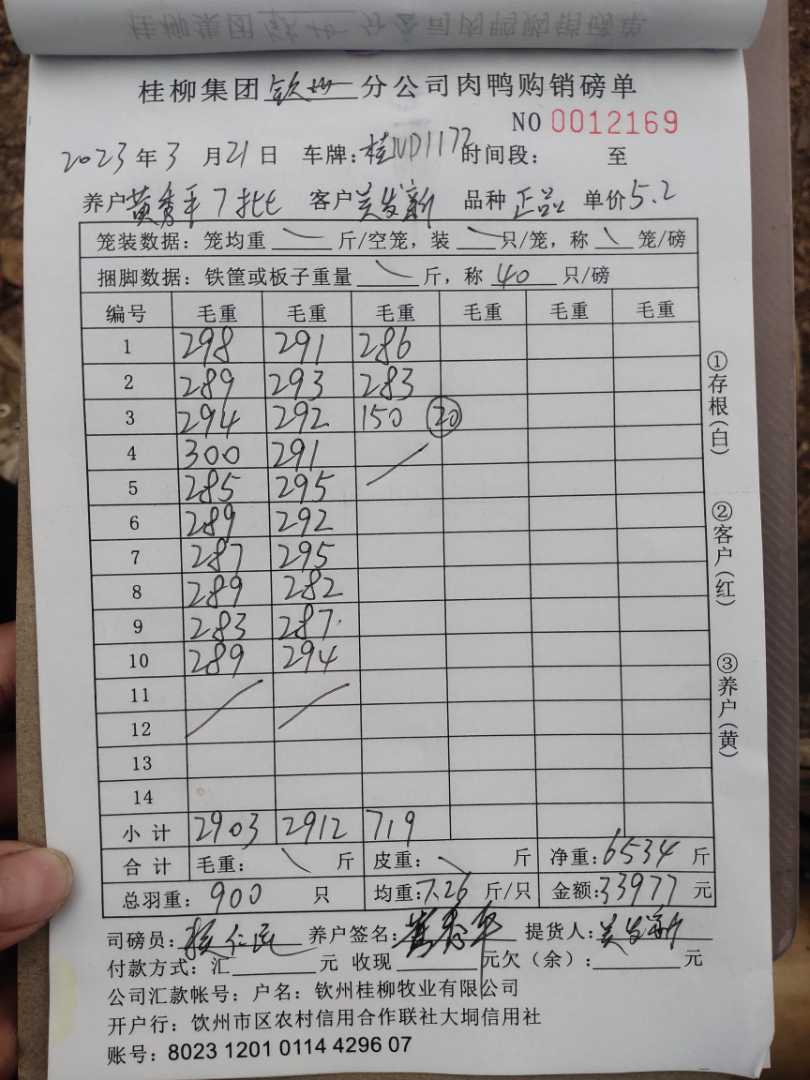 桂柳集团钦州分公司肉鸭购销磅单
NO 0012169
2023年3月21日 车牌:桂ND1177 时间段: 至
养户黄秀平7批 客户吴发新 品种正品 单价5.2
笼装数据:笼均重 斤/空笼,装 只/笼,称 笼/磅
捆脚数据:铁筐或板子重量 斤,称 40 只/磅
编号 毛重 毛重 毛重 毛重 毛重 毛重
1 298 291 286
2 289 293 283
3 294 292 150 20
4 300 291
5 285 295
6 289 292
7 287 295
8 289 282
9 283 287
10 289 294
11
12
13
14
小计 2903 2912 719
合计 毛重: 斤 皮重: 斤 净重:6534 斤
总羽重: 900 只 均重:7.26 斤/只 金额:33977 元
司磅员: 仁 养户签名:黄秀平 提货人:吴发新
付款方式:汇 元 收现 元欠(余): 元
公司汇款帐号:户名:钦州桂柳牧业有限公司
开户行:饮州市区农村信用合作联社大垌信用社
账号:8023 1201 0114 4296 07
①存根(白)
②客户(红)
③养户(黄)